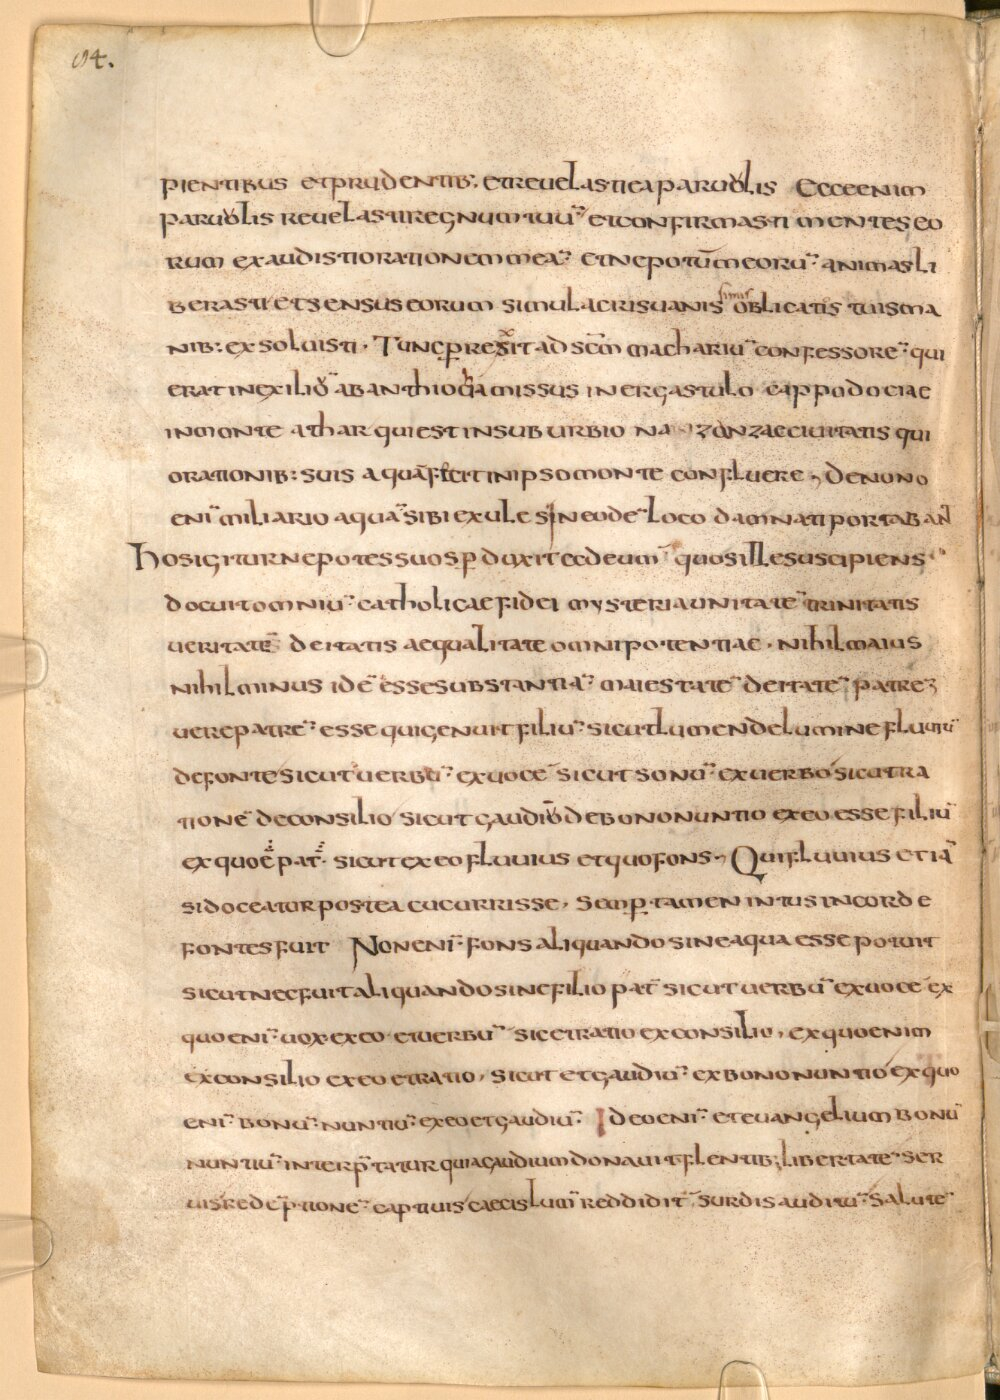 94.
pientibus et prudentib: et reuelasti ea paruolis Ecce enim
paruolis reuelasti regnum tuū et confirmasti mentes eo
rum exaudisti orationem meā et nepotū meorū animas li
berasti et sensus eorum simulacris uanis oblicatis tuis ma
nib: exsoluisti. Tunc perrexit ad scm machariū confessorē qui
erat in exilio ab anthiochia missus in ergastulo cappodociae
in monte athar qui est in suburbio ciuitatis qui
orationib: suis aquā fecit in ipso monte confluere, de nono
enī miliario aquā sibi exules in eodē loco damnati portabant
Hos igitur nepotes suos pduxit ec deum quos ille suscipiens
docuit omniū catholicae fidei mysteria unitatē trinitatis
ueritatē deitatis aequalitate omnipotentiae. nihil maius
nihil minus idē esse substantiā maiestatē deitatē patrē
uere patrē esse qui genuit filiū sicut lumen de lumine fluuiū
de fonte sicut uerbū ex uoce sicut sonū ex uerbo sicut ra
tionē de consilio sicut gaudiū de bono nuntio ex eo esse filiū
ex quo ē pat. sicut ex eo fluuius et quo fons. Qui fluuius etiā
si doceatur postea cucurrisse, semp tamen intus in corde
fontes fuit Non enī fons aliquando sine aqua esse potuit
sicut nec fuit aliquando sine filio pat sicut uerbū ex uoce ex
quo enī uox ex eo et uerbū sic et ratio ex consilio, ex quo enim
ex consilio ex eo et ratio, sicut et gaudiū ex bono nuntio ex quo
enī bonū nuntiū ex eo et gaudiū. Ideo enī et euangelium bonū
nuntiū interptatur quia gaudium donauit flentib; libertatē ser
uis redēptionē captiuis caecis lum reddidit surdis auditū salutē